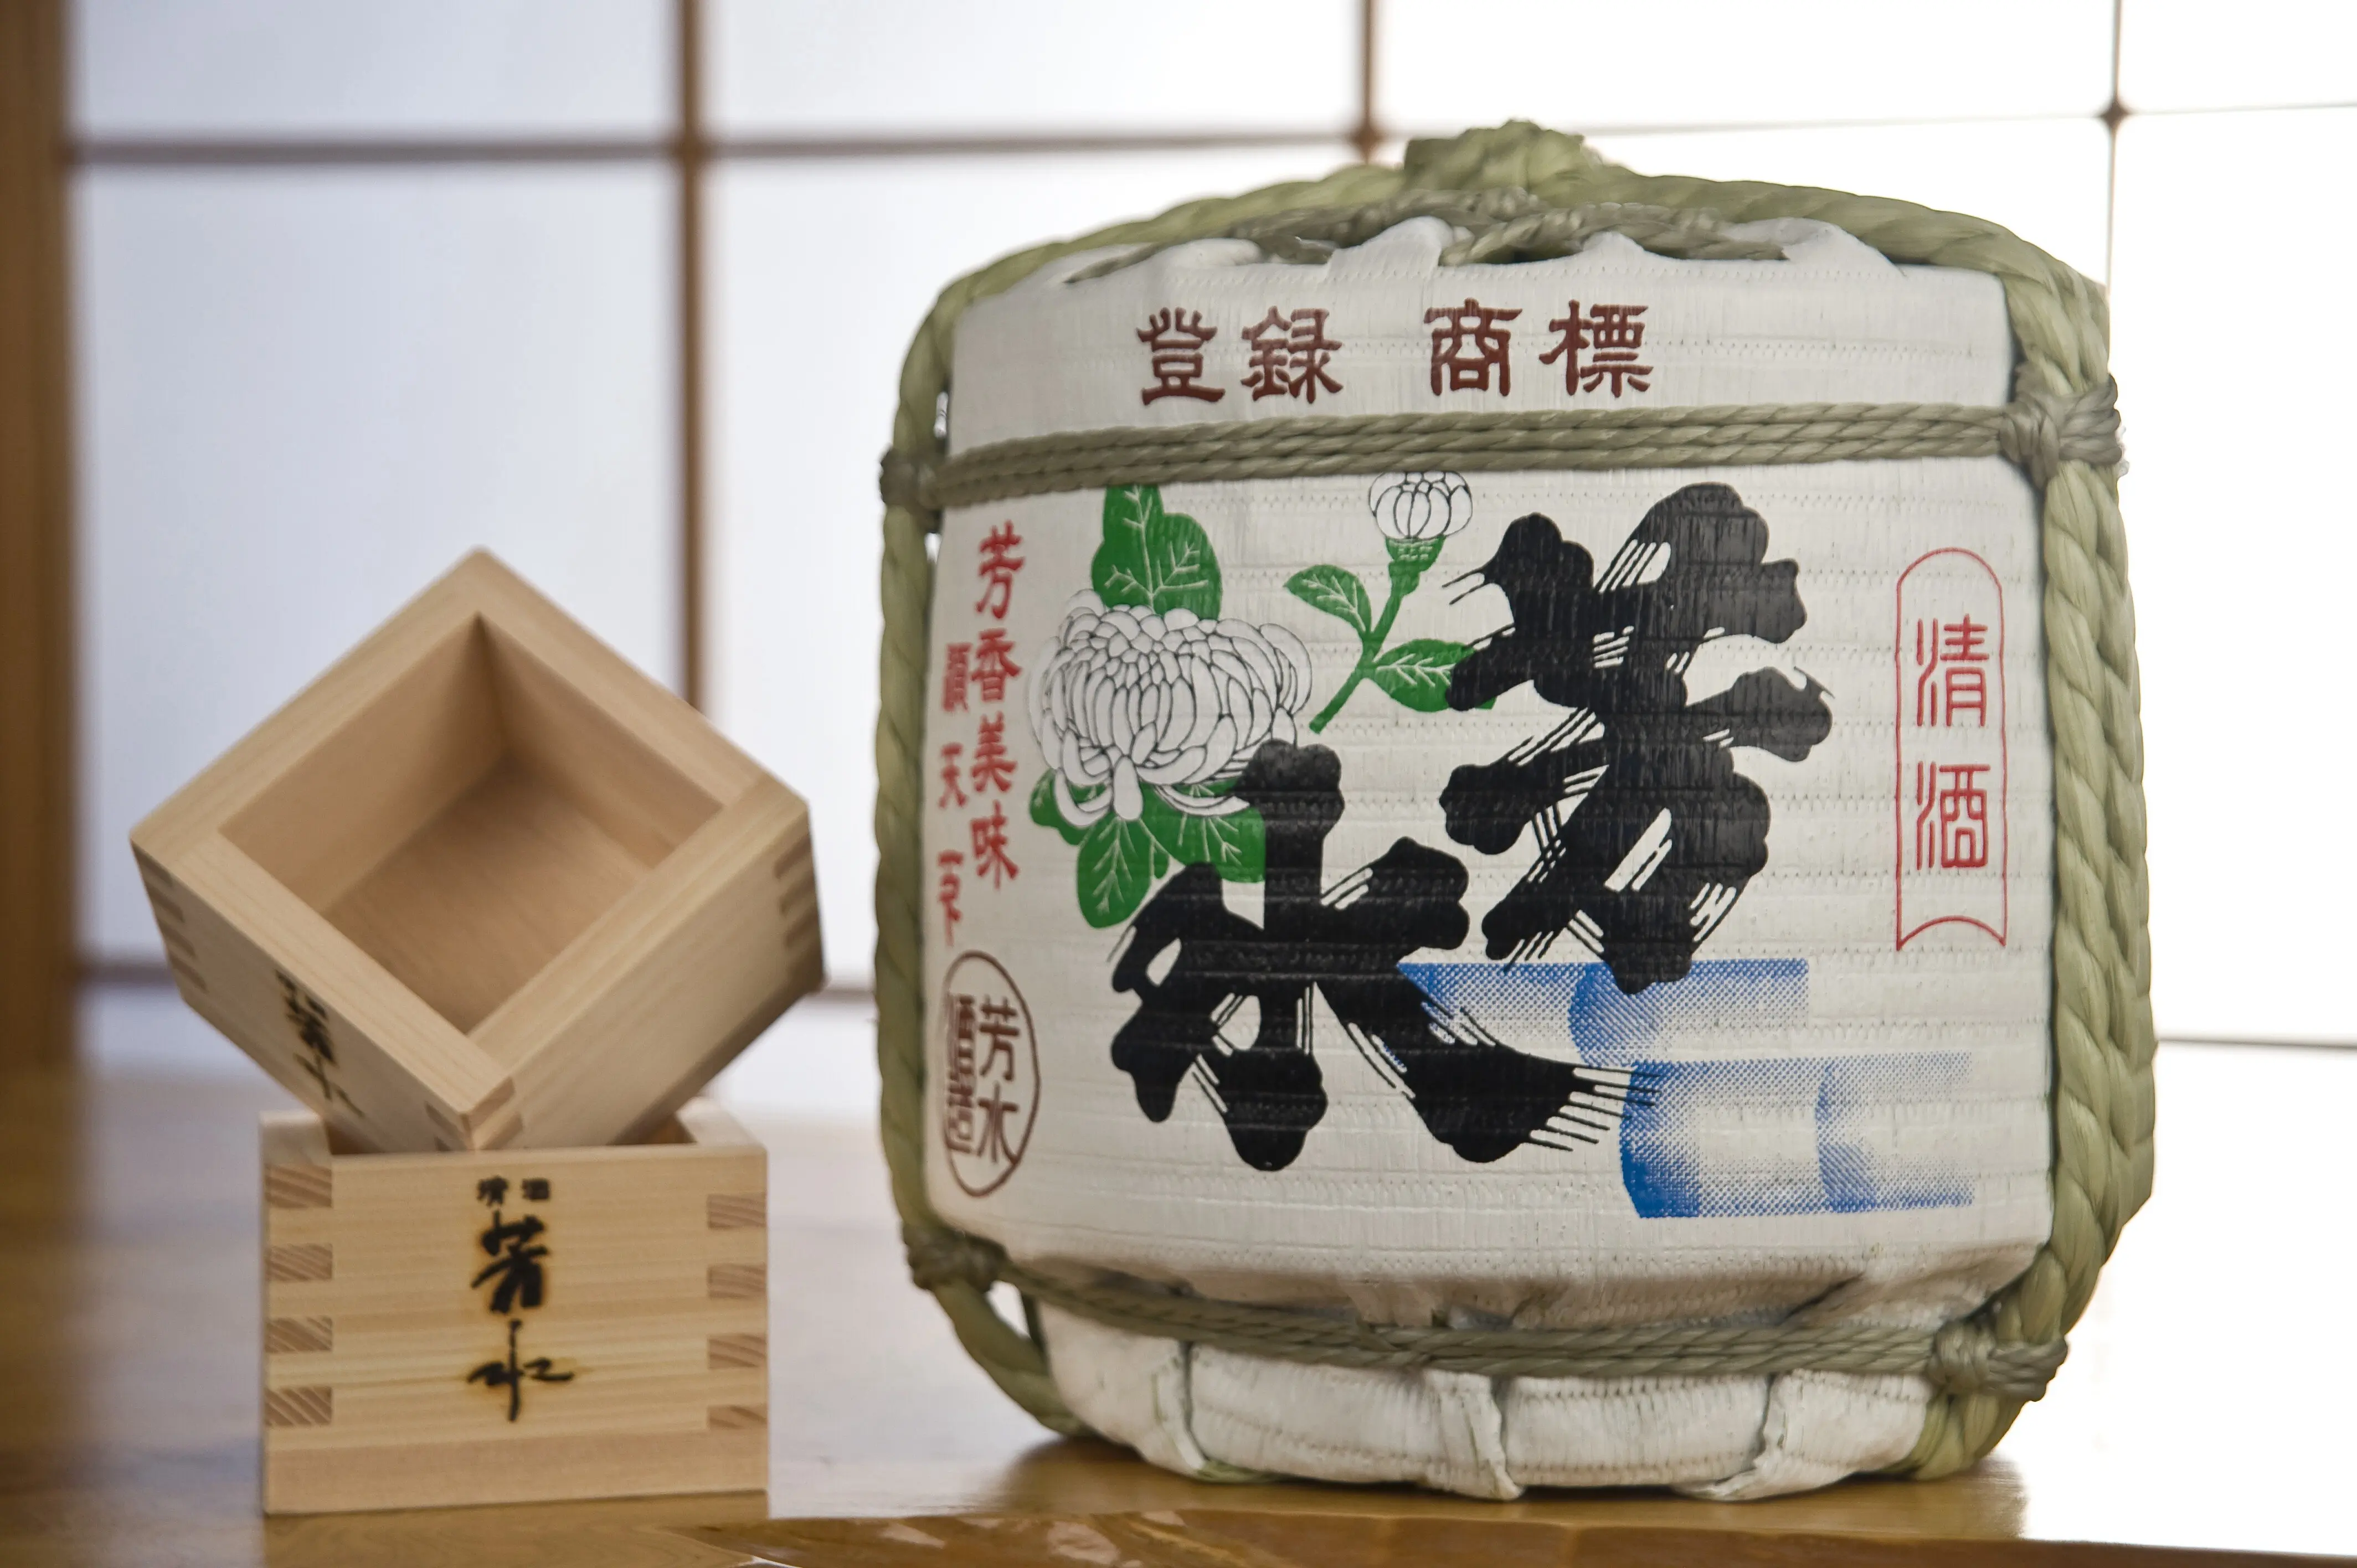 登録 商標
清酒
芳水
芳香美味
願天下
芳水
酒造
清酒
芳水
芳水